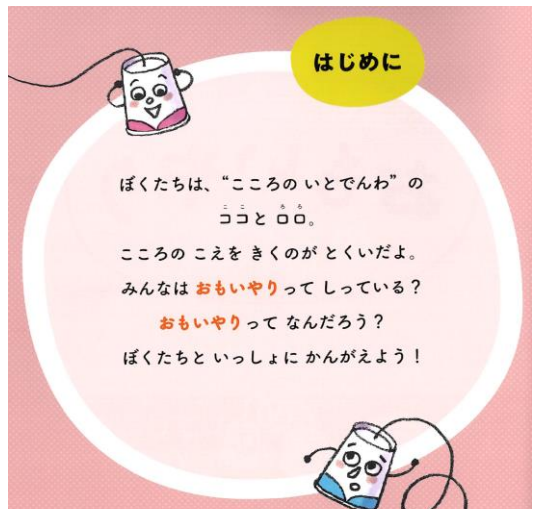 はじめに
ぼくたちは、“こころの いとでんわ” の
ココと ロロ。
こころの こえを きくのが とくいだよ。
みんなは おもいやりって しっている？
おもいやりって なんだろう？
ぼくたちと いっしょに かんがえよう！